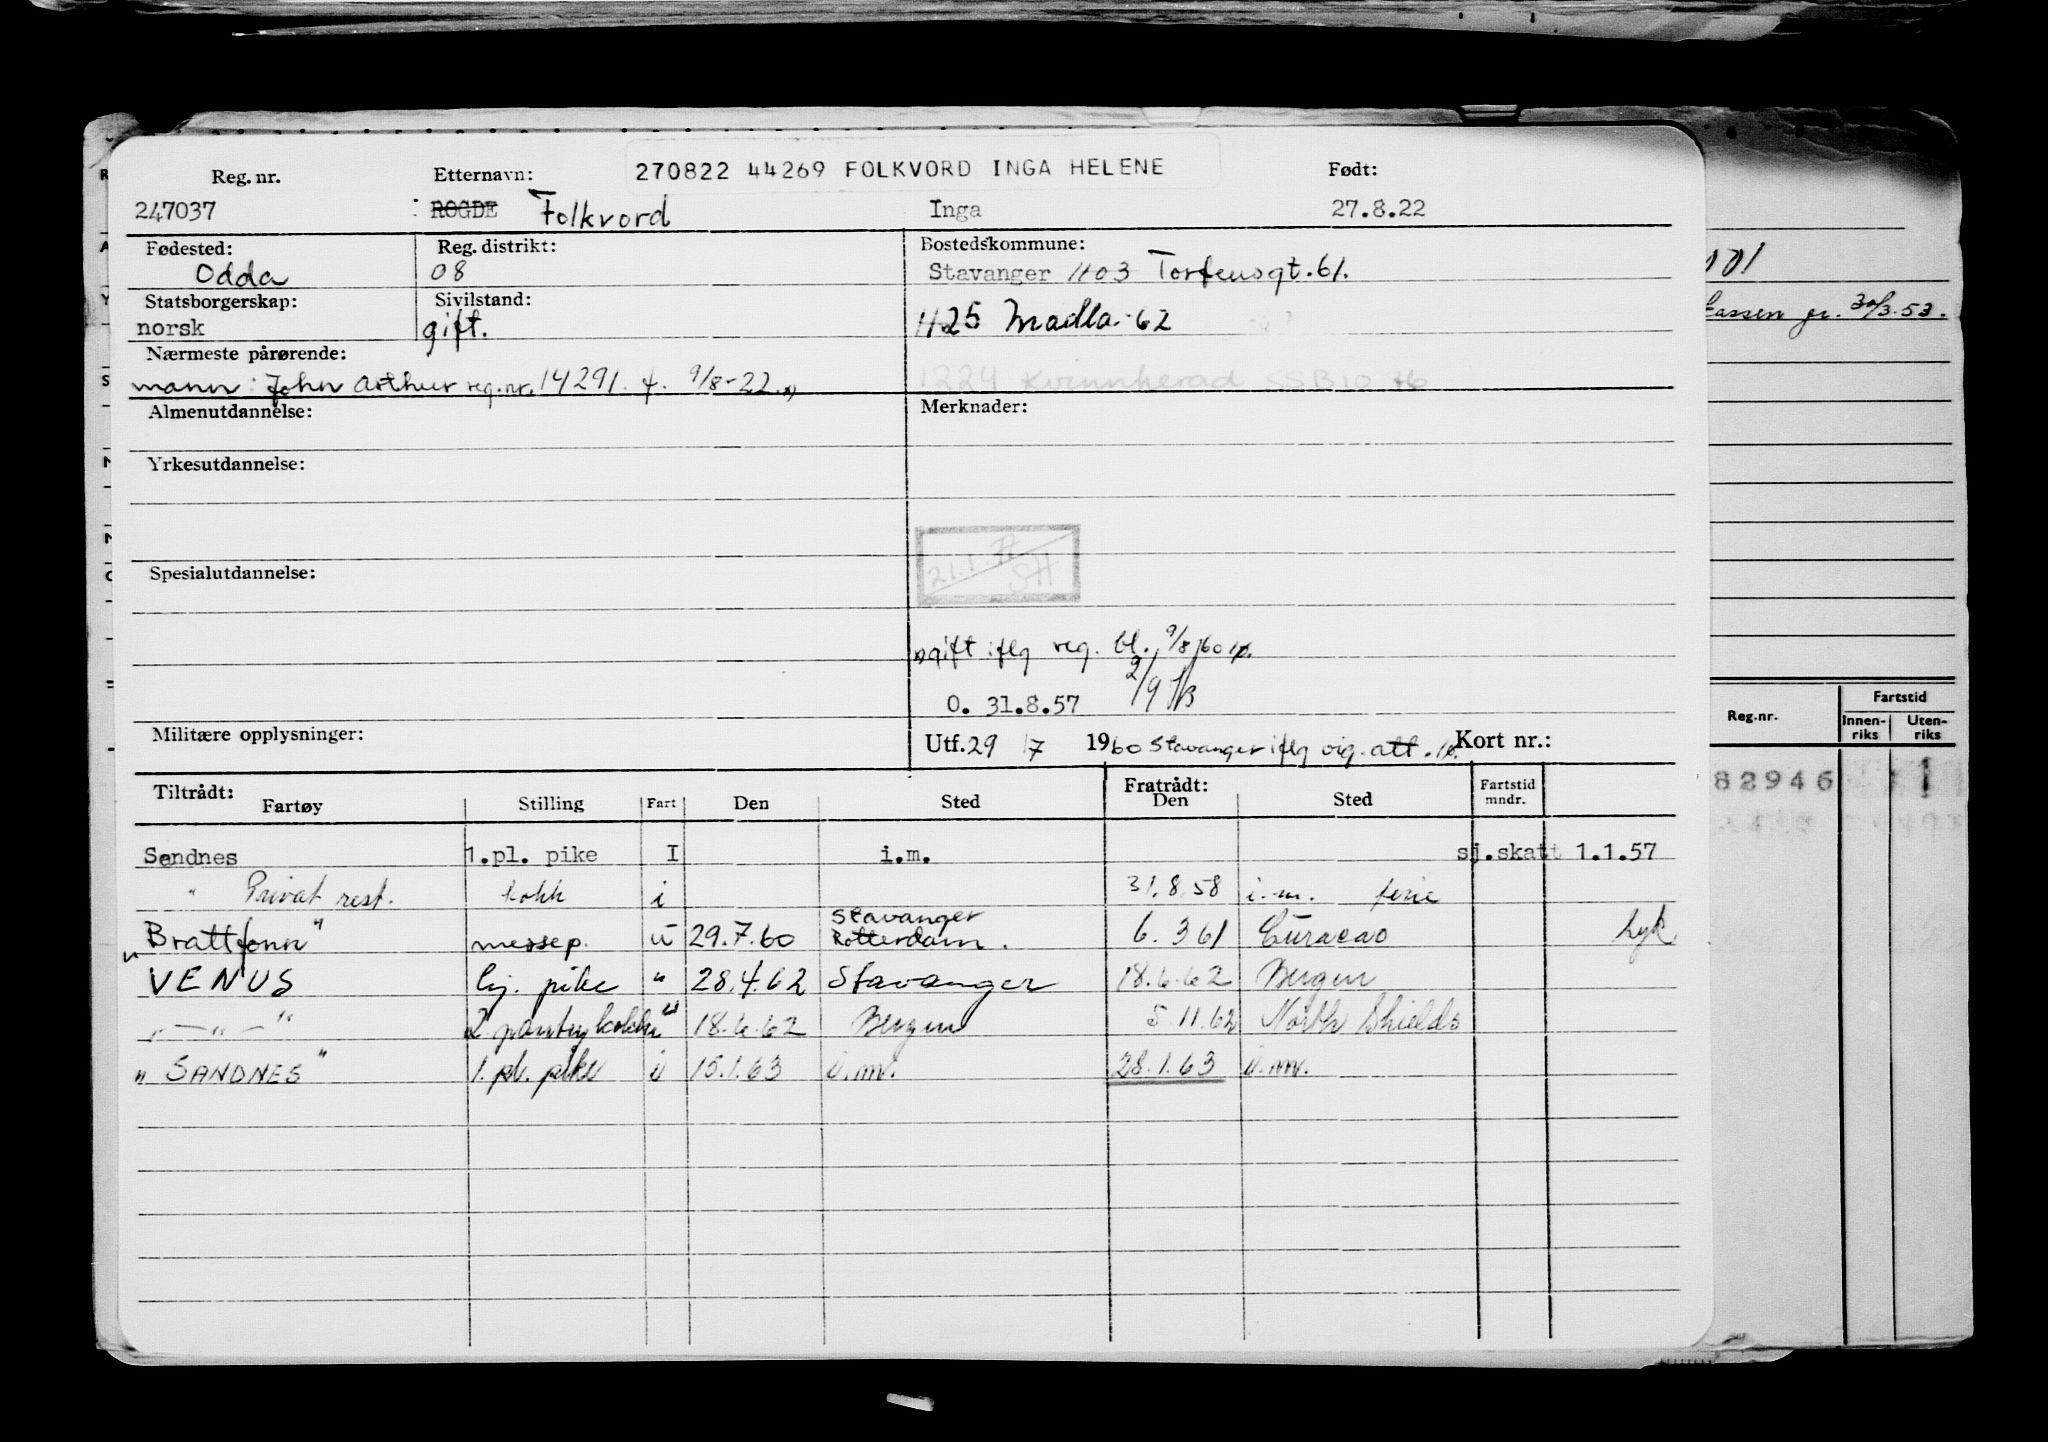 270822 44269 FOLKVORD INGA HELENE
Reg. nr. Etternavn: Født:
247037 : ROGDE Folkvord Inga 27.8.22
Fødested: Reg. distrikt: Bostedskommune:
Odda 08 Stavanger 1103 Torfeusgt. 61.
Statsborgerskap: Sivilstand:
norsk gift. 1125 Madla - 62
Nærmeste pårørende:
mann: John Arthur reg.nr. 14291. f. 9/8-22. x) 1224 Kvinnherad SSB 10 76
Almenutdannelse: Merknader:
Yrkesutdannelse:
21.1.77 SH
Spesialutdannelse:
x) gift iflg reg. bl. 9/8 60
O. 31.8.57 2/9
Militære opplysninger: Utf. 29 / 7 1960 Stavanger iflg vig. att. Kort nr.:
Tiltrådt: Fratrådt:
Fartøy Stilling Fart Den Sted Den Sted Fartstid mndr.
Sandnes 1.pl. pike I i.m. sj.skatt 1.1.57
" Privat rest. kokk i 31.8.58 i.m. ferie
"Brattfonn" messep. u 29.7.60 Stavanger Rotterdam. 6.3 61 Curacao
VENUS lug. pike " 28.4.62 Stavanger 18.6.62 Bergen
" — " — " 2. pantry " 18.6.62 Bergen 5 11.62 North Shields
" SANDNES " 1. pl. pike i 15.1.63 i.m. 28.1.63 i.m.
101
30/3.53.
Reg.nr. Fartstid
Innen-riks Uten-riks
82946 1